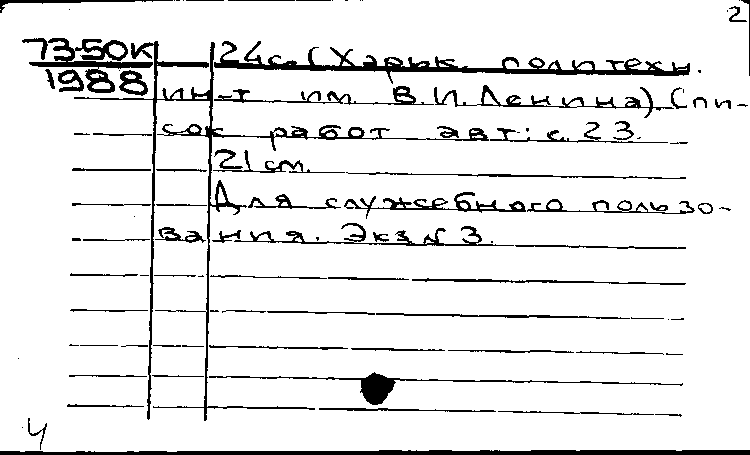 2
73-50К 24с. (Харьк. политехн.
1988 ин-т им. В.И.Ленина). Спи-
сок работ авт: с. 23.
21 см.
Для служебного пользо-
вания. Экз № 3.
4